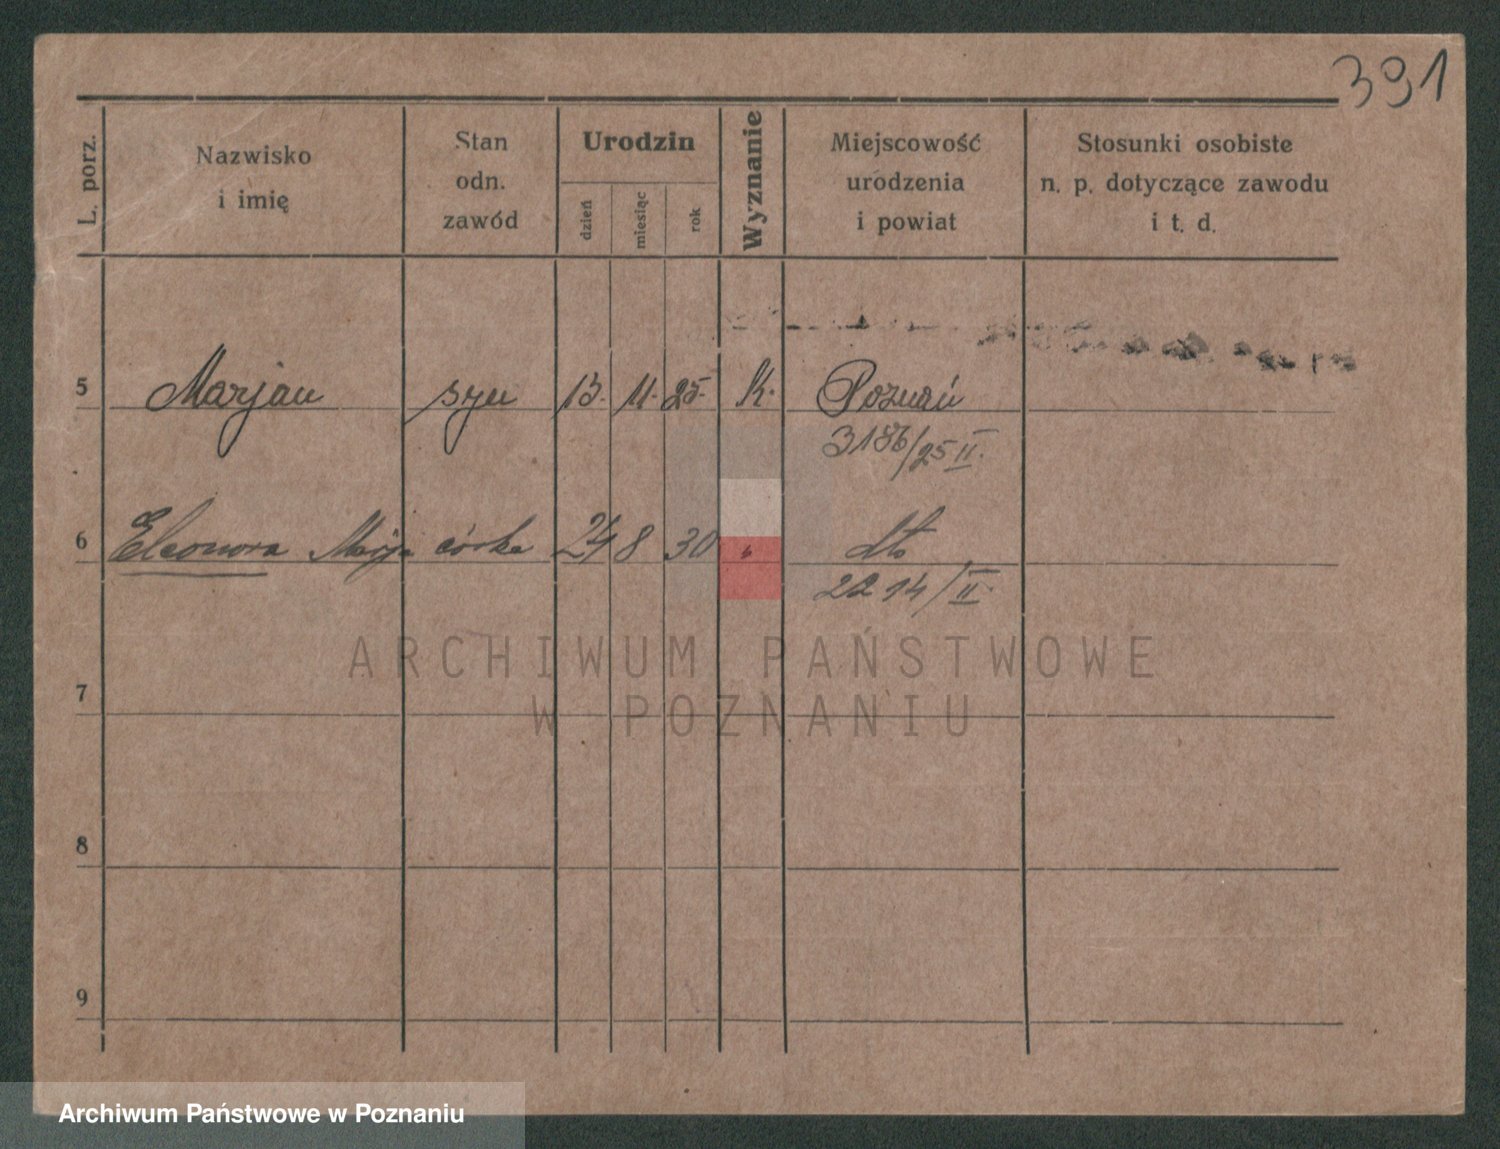 391
L. porz.
Nazwisko
i imię
Stan
odn.
zawód
Urodzin
dzień
miesiąc
rok
Wyznanie
Miejscowość
urodzenia
i powiat
Stosunki osobiste
n. p. dotyczące zawodu
i t. d.
5 Marjan syn 13. 11. 25. K. Poznań
3186/25 II.
6 Eleonora Marja córka 24 8 30 " dto
2214/II.
ARCHIWUM PAŃSTWOWE
W POZNANIU
7
8
9
Archiwum Państwowe w Poznaniu